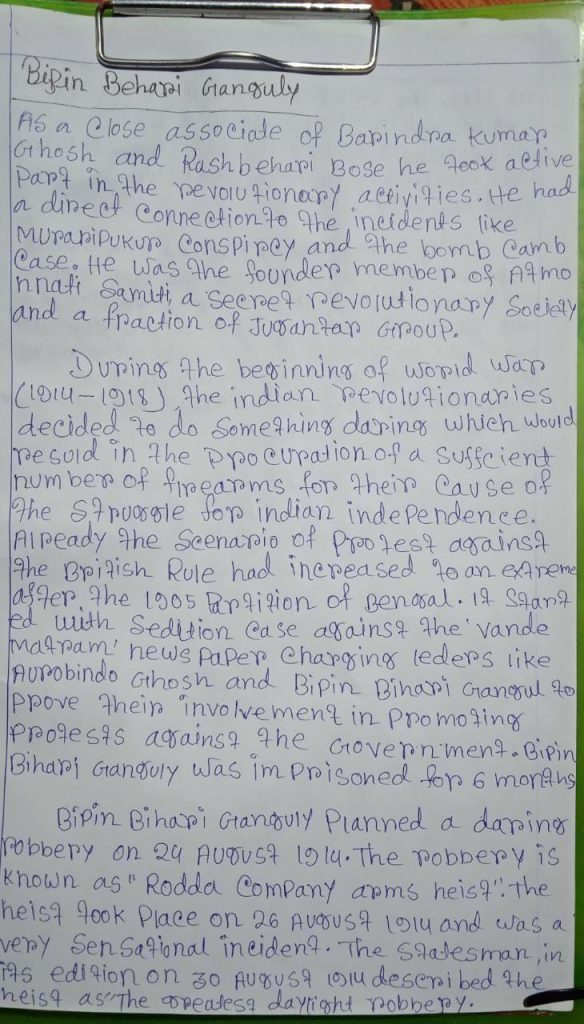 Bipin Behari Ganguly
As a close associate of Barindra Kumar
Ghosh and Rashbehari Bose he took active
part in the revolutionary activities. He had
a direct connection to the incidents like
Muraripukur conspircy and the bomb camb
case. He was the founder member of Atmo
nnati Samiti, a secret revolutionary society
and a fraction of Jugantar Group.
During the beginning of world war
(1914-1918), the indian revolutionaries
decided to do something daring which would
resuld in the procuration of a suffcient
number of firearms for their cause of
the struggle for indian independence.
Already the scenario of protest against
the British Rule had increased to an extreme
after the 1905 Partition of Bengal. it start
ed with Sedition case against the 'vande
matram' news paper charging leders like
Aurobindo Ghosh and Bipin Bihari Gangul to
prove their involvement in promoting
protests against the Government. Bipin
Bihari Ganguly was imprisoned for 6 months
Bipin Bihari Ganguly planned a daring
robbery on 24 August 1914. The robbery is
known as "Rodda Company arms heist". the
heist took place on 26 August 1914 and was a
very sensational incident. The statesman, in
its edition on 30 August 1914 described the
heist as "The greatest daylight robbery.